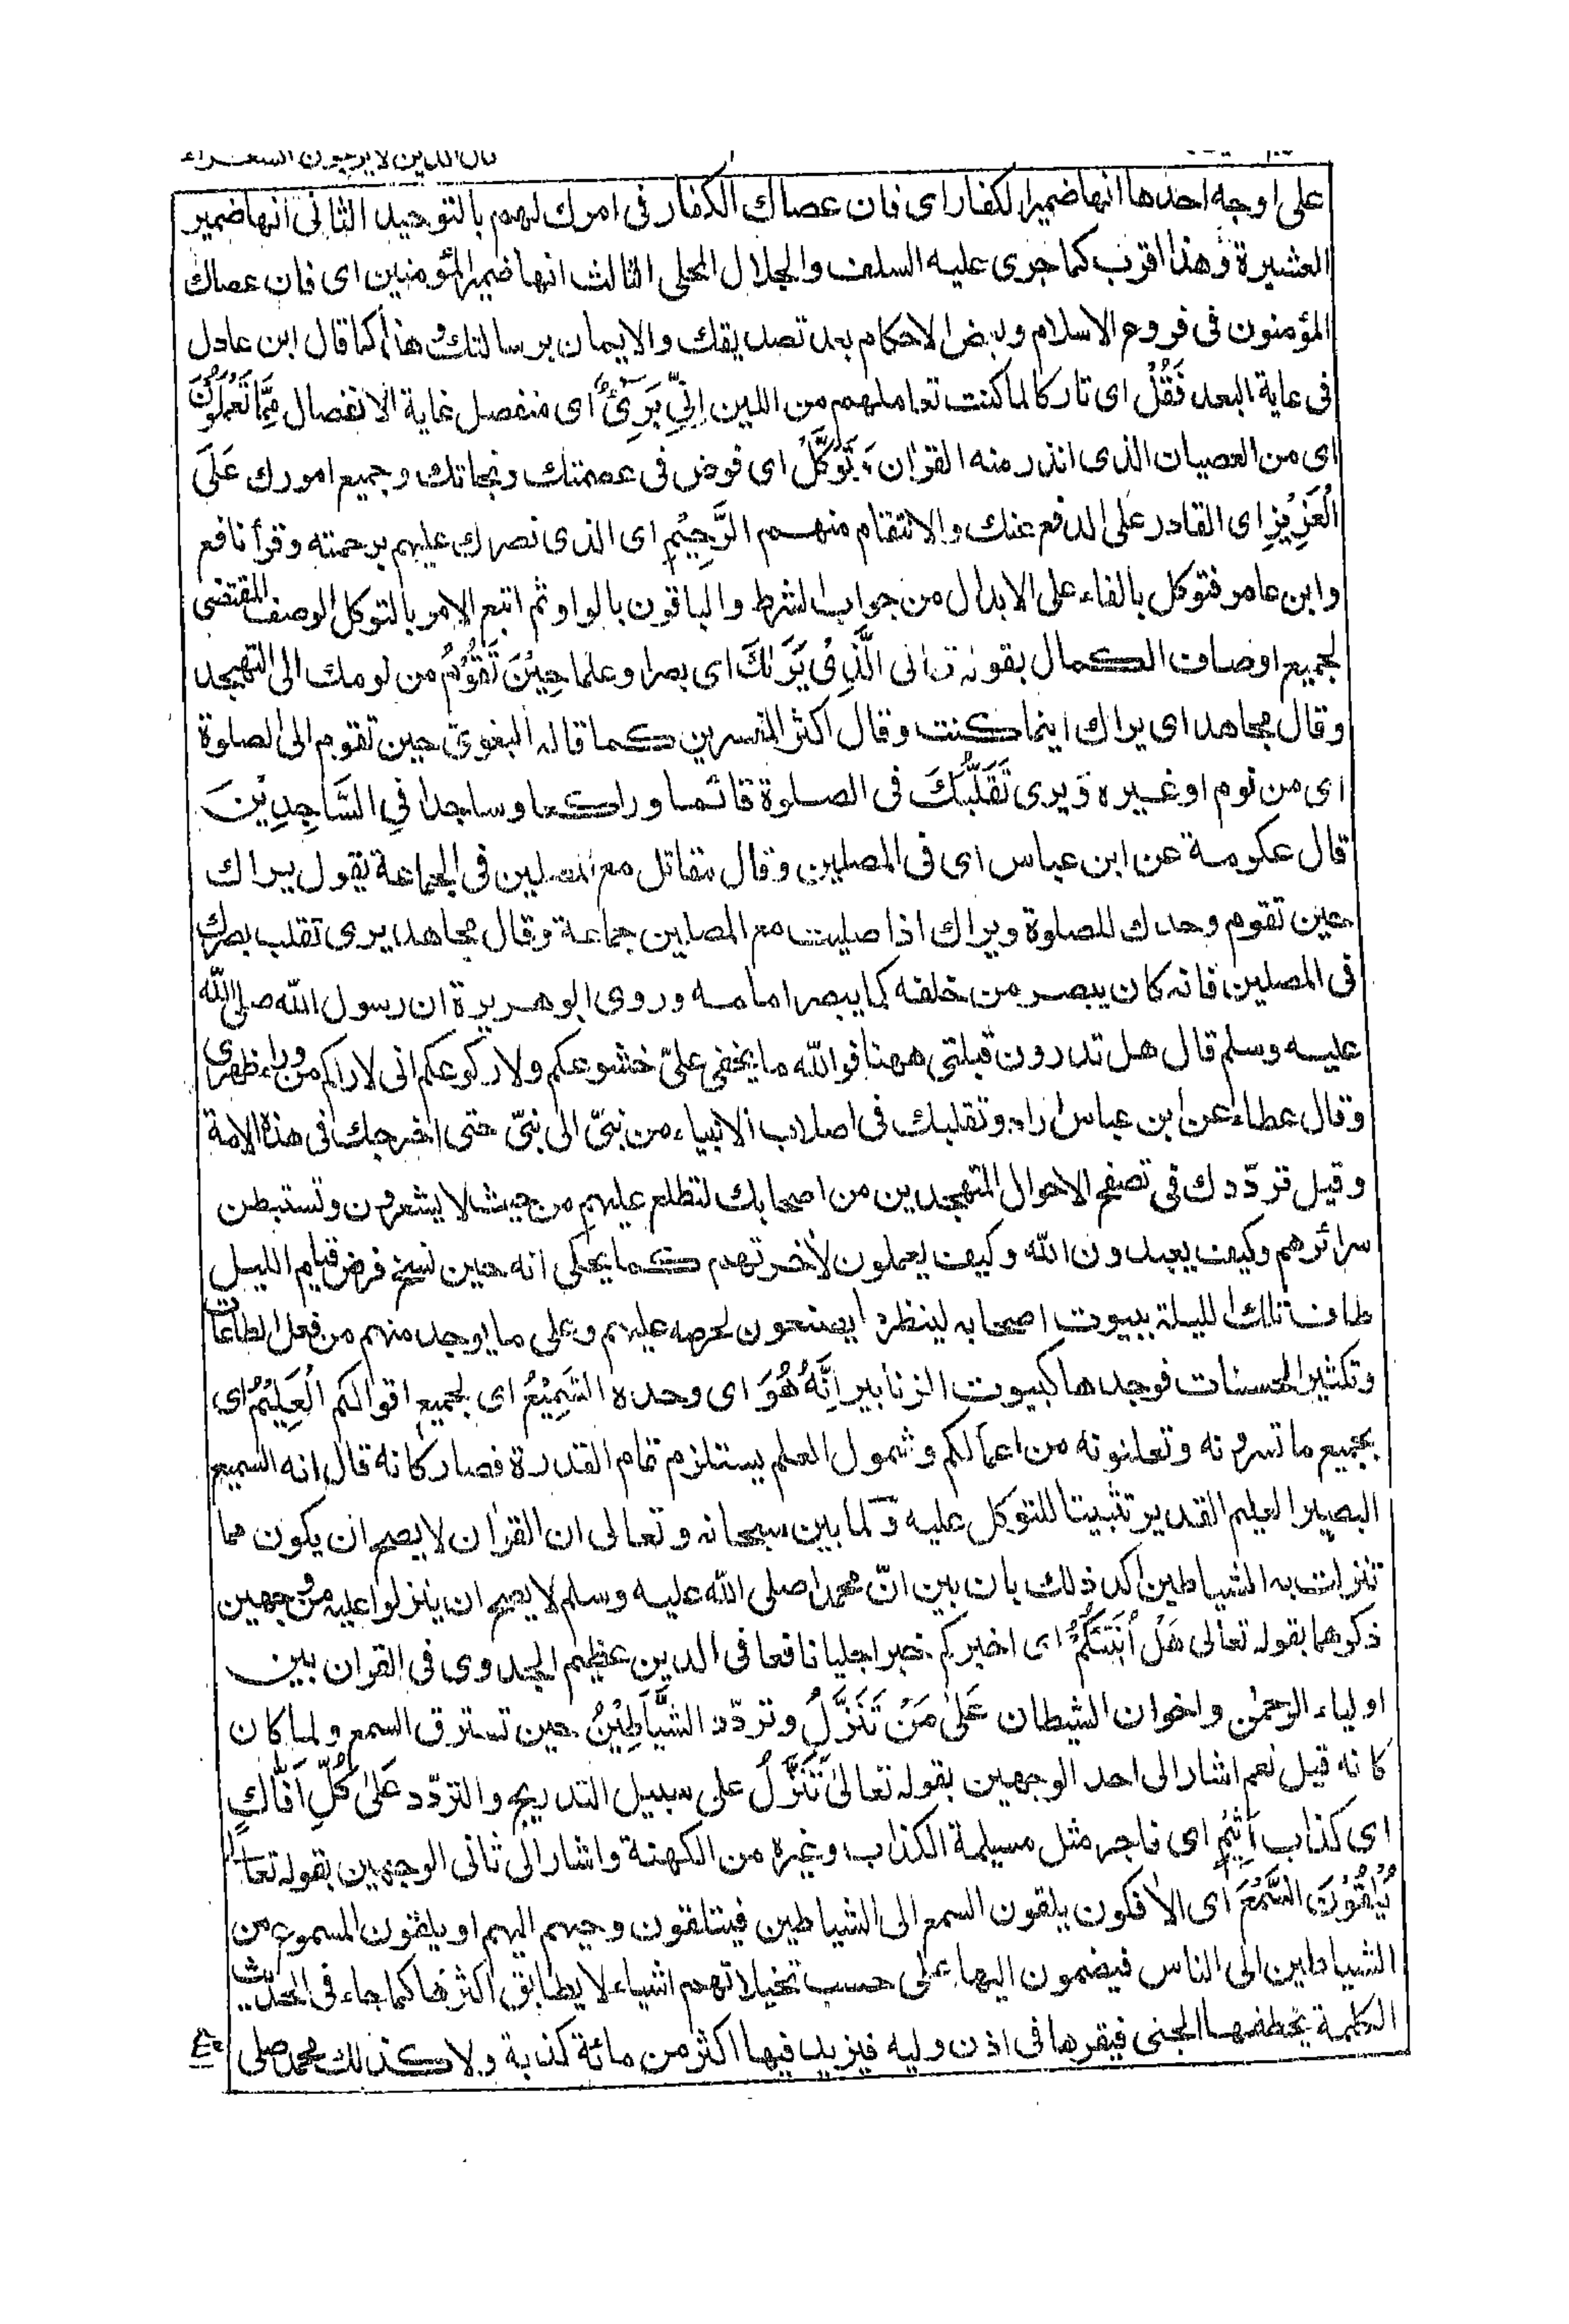 وقال الذين لا يرجون الشعراء
على اوجه احدها انها ضمير الكفار اى فان عصاك الكفار فى امرك لهم بالتوحيد الثانى انها ضمير
العشيرة وهذا اقرب كما جرى عليه السلف والجلال المحلى الثالث انها ضمير المؤمنين اى فان عصاك
المؤمنون فى فروع الاسلام وبعض الاحكام بعد تصديقك والايمان برسالتك وهذا كما قال ابن عادل
فى غاية البعد فَقُلْ اى تاركا لما كنت تعاملهم من اللين اِنِّىْ بَرِىْٓءٌ اى منفصل غاية الانفصال مِّمَّا تَعْمَلُوْنَ
اى من العصيان الذى انذر منه القرٰان وَتَوَكَّلْ اى فوض فى عصمتك ونجاتك وجميع امورك عَلَى
الْعَزِيْزِ اى القادر على الدفع عنك والانتقام منهم الرَّحِيْمِ اى الذى نصرك عليهم برحمته وقرأ نافع
وابن عامر فتوكل بالفاء على الابدال من جواب الشرط والباقون بالواو ثم اتبع الامر بالتوكل الوصف المقتضى
لجميع اوصاف الكمال بقوله تعالى الَّذِىْ يَرٰىكَ اى بصرا وعلما حِيْنَ تَقُوْمُ من نومك الى التهجد
وقال مجاهد اى يراك اينما كنت وقال اكثر المفسرين كما قاله البغوى حين تقوم الى الصلوة
اى من نوم او غيره وَ يرى تَقَلُّبَكَ فى الصلوة قائما وراكعا وساجدا فِى السَّاجِدِيْنَ
قال عكرمة عن ابن عباس اى فى المصلين وقال مقاتل مع المصلين فى الجماعة يقول يراك
حين تقوم وحدك للصلوة ويراك اذا صليت مع المصلين جماعة وقال مجاهد يرى تقلب بصرك
فى المصلين فانه كان يبصر من خلفه كما يبصر امامه وروى ابو هريرة ان رسول الله صلى الله
عليه وسلم قال هل تدرون قبلتى ههنا فوالله ما يخفى علىّ خشوعكم ولا ركوعكم انى لاراكم من وراء ظهرى
وقال عطاء عن ابن عباس اراد وتقلبك فى اصلاب الانبياء من نبىّ الى نبىّ حتى اخرجك فى هذه الامة
وقيل تردّدك فى تصفح الاحوال المتهجدين من اصحابك لتطلع عليهم من حيث لا يشعرون وتستبطن
سرائرهم وكيف يعبدون الله وكيف يعملون لاٰخرتهم كما يحكى انه حين نسخ فرض قيام الليل
طاف تلك الليلة ببيوت اصحابه لينظر ما يصنعون لحرصه عليهم وعلى ما يوجد منهم من فعل الطاعات
وتكثير الحسنات فوجدها كبيوت الزنابير اِنَّهٗ هُوَ اى وحده السَّمِيْعُ اى لجميع اقوالكم الْعَلِيْمُ اى
بجميع ما تسرونه وتعلنونه من اعمالكم وشمول العلم يستلزم تمام القدرة فصار كانه قال انه السميع
البصير العليم القدير تثبيتا للتوكل عليه ولما بين سبحانه وتعالى ان القرٰان لا يصح ان يكون مما
تنزلت به الشياطين اكد ذلك بان بين انّ محمدا صلى الله عليه وسلم لا يصح ان ينزلوا عليه من وجهين
ذكرهما بقوله تعالى هَلْ اُنَبِّئُكُمْ اى اخبركم خبرا جليا نافعا فى الدين عظيم الجدوى فى القران بين
اولياء الرحمٰن واخوان الشيطان عَلٰى مَنْ تَنَزَّلُ وتردّد الشَّيٰاطِيْنُ حين تسترق السمع ولما كان
كانه قيل نعم اشار الى احد الوجهين بقوله تعالى تَنَزَّلُ على سبيل التدريج والتردّد عَلٰى كُلِّ اَفَّاكٍ
اى كذاب اَثِيْمٍ اى فاجر مثل مسيلمة الكذاب وغيره من الكهنة واشار الى ثانى الوجهين بقوله تعالى
يُلْقُوْنَ السَّمْعَ اى الافكون يلقون السمع الى الشياطين فيتلقون وحيهم اليهم او يلقون المسموع من
الشياطين الى الناس فيضمون اليها على حسب تخيلاتهم اشياء لا يطابق اكثرها كما جاء فى الحديث
الكلمة يخطفها الجنى فيقرها فى اذن وليه فيزيد فيها اكثر من مائة كذبة ولا كذلك محمد صلى